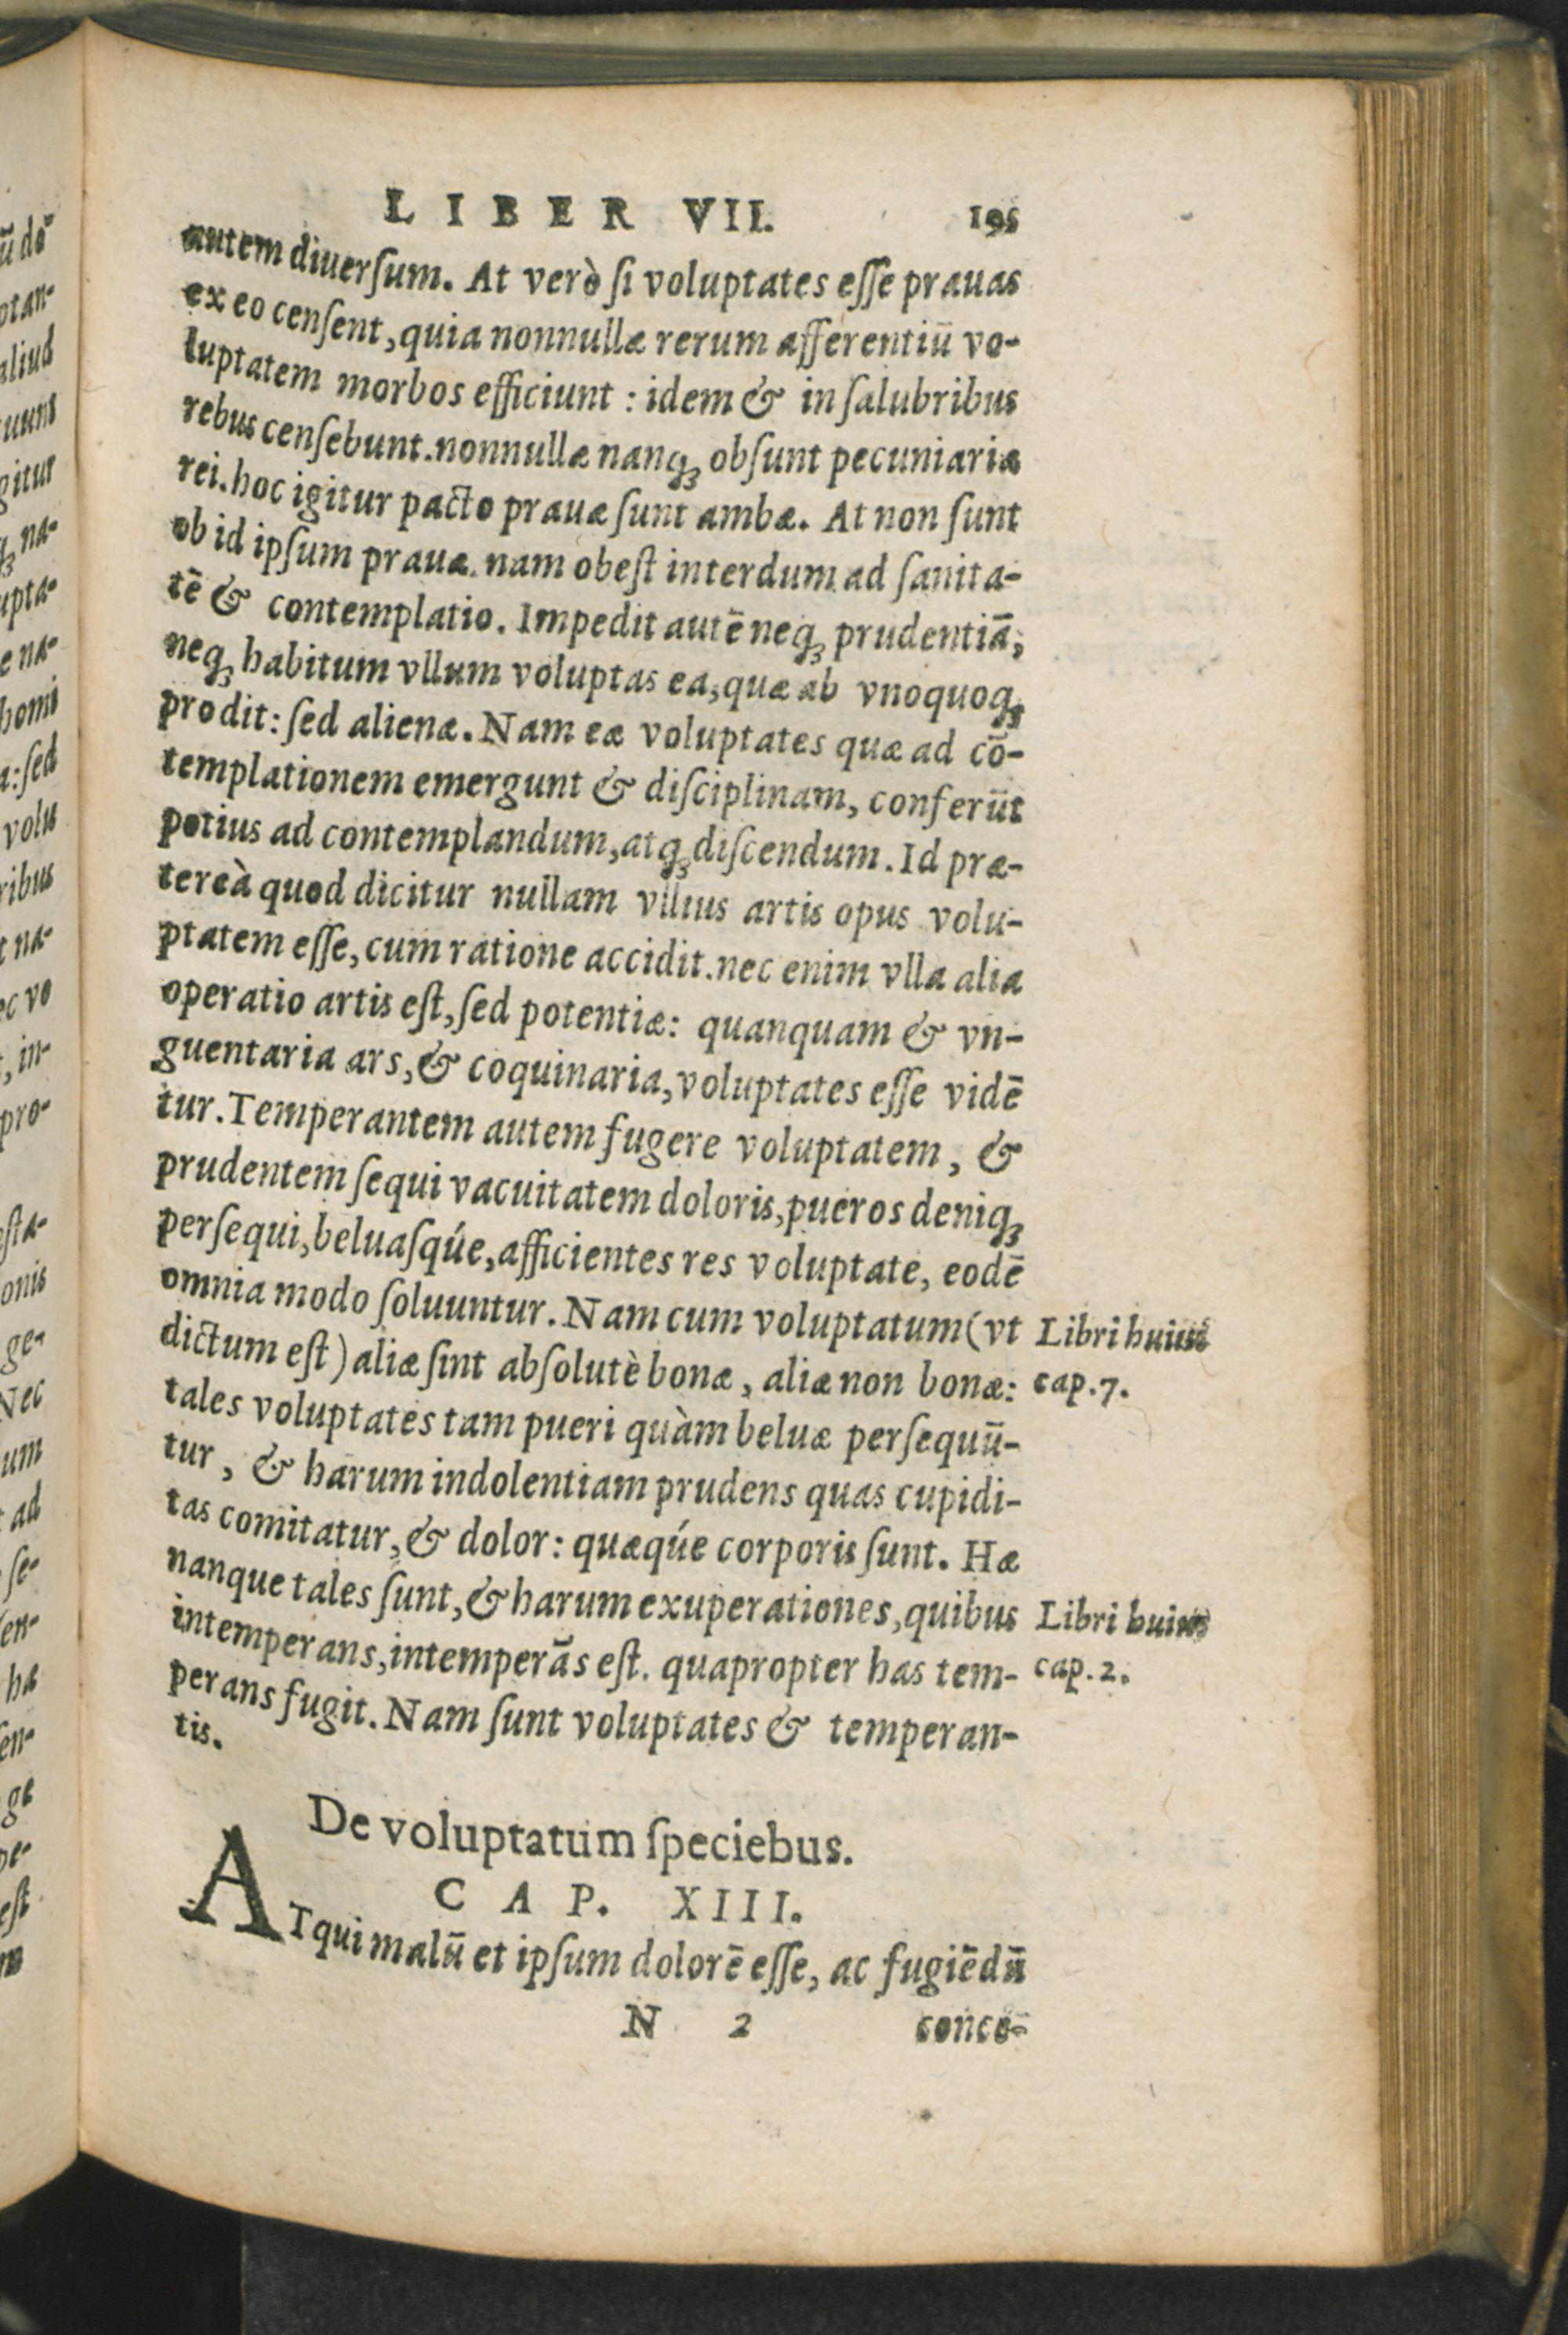 LIBER VII. 195
autem diuerſum. At verò ſi voluptates eſſe prauas
ex eo cenſent, quia nonnullæ rerum afferentiū vo-
luptatem morbos efficiunt : idem & in ſalubribus
rebus cenſebunt. nonnullæ nanq; obſunt pecuniariæ
rei. hoc igitur pacto prauæ ſunt ambæ. At non ſunt
ob id ipſum prauæ. nam obeſt interdum ad ſanita-
tē & contemplatio. Impedit autē neq; prudentiā,
neq; habitum vllum voluptas ea, quæ ab vnoquoq;
prodit: ſed alienæ. Nam eæ voluptates quæ ad cō-
templationem emergunt & diſciplinam, conferūt
potius ad contemplandum, atq; diſcendum. Id præ-
tereà quod dicitur nullam vllius artis opus volu-
ptatem eſſe, cum ratione accidit. nec enim vlla alia
operatio artis eſt, ſed potentiæ: quanquam & vn-
guentaria ars, & coquinaria, voluptates eſſe vidē
tur. Temperantem autem fugere voluptatem, &
prudentem ſequi vacuitatem doloris, pueros deniq;
perſequi, beluaſqúe, afficientes res voluptate, eodē
omnia modo ſoluuntur. Nam cum voluptatum (vt
dictum eſt) aliæ ſint abſolutè bonæ, aliæ non bonæ:
tales voluptates tam pueri quàm beluæ perſequū-
tur, & harum indolentiam prudens quas cupidi-
tas comitatur, & dolor: quæqúe corporis ſunt. Hæ
nanque tales ſunt, & harum exuperationes, quibus
intemperans, intemperās eſt. quapropter has tem-
perans fugit. Nam ſunt voluptates & temperan-
tis.
Libri huius
cap. 7.
Libri huius
cap. 2.
De voluptatum ſpeciebus.
CAP. XIII.
ATqui malū et ipſum dolorē eſſe, ac fugiēdū
N 2 conce-